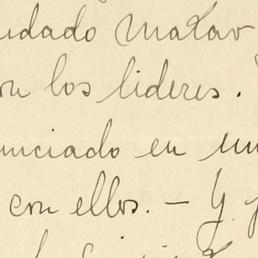 udado matar
on los lideres.
unciado en un
con ellos. — Y